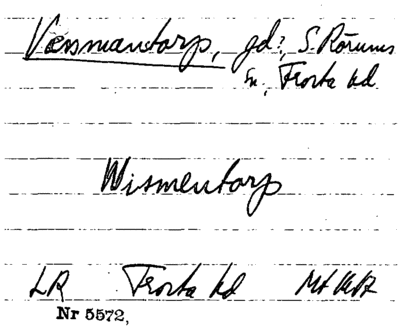 Väsmantorp, gd?, S. Rörums
sn, Frosta hd
Wismentorp
LR Frosta hd
Nr 5572,